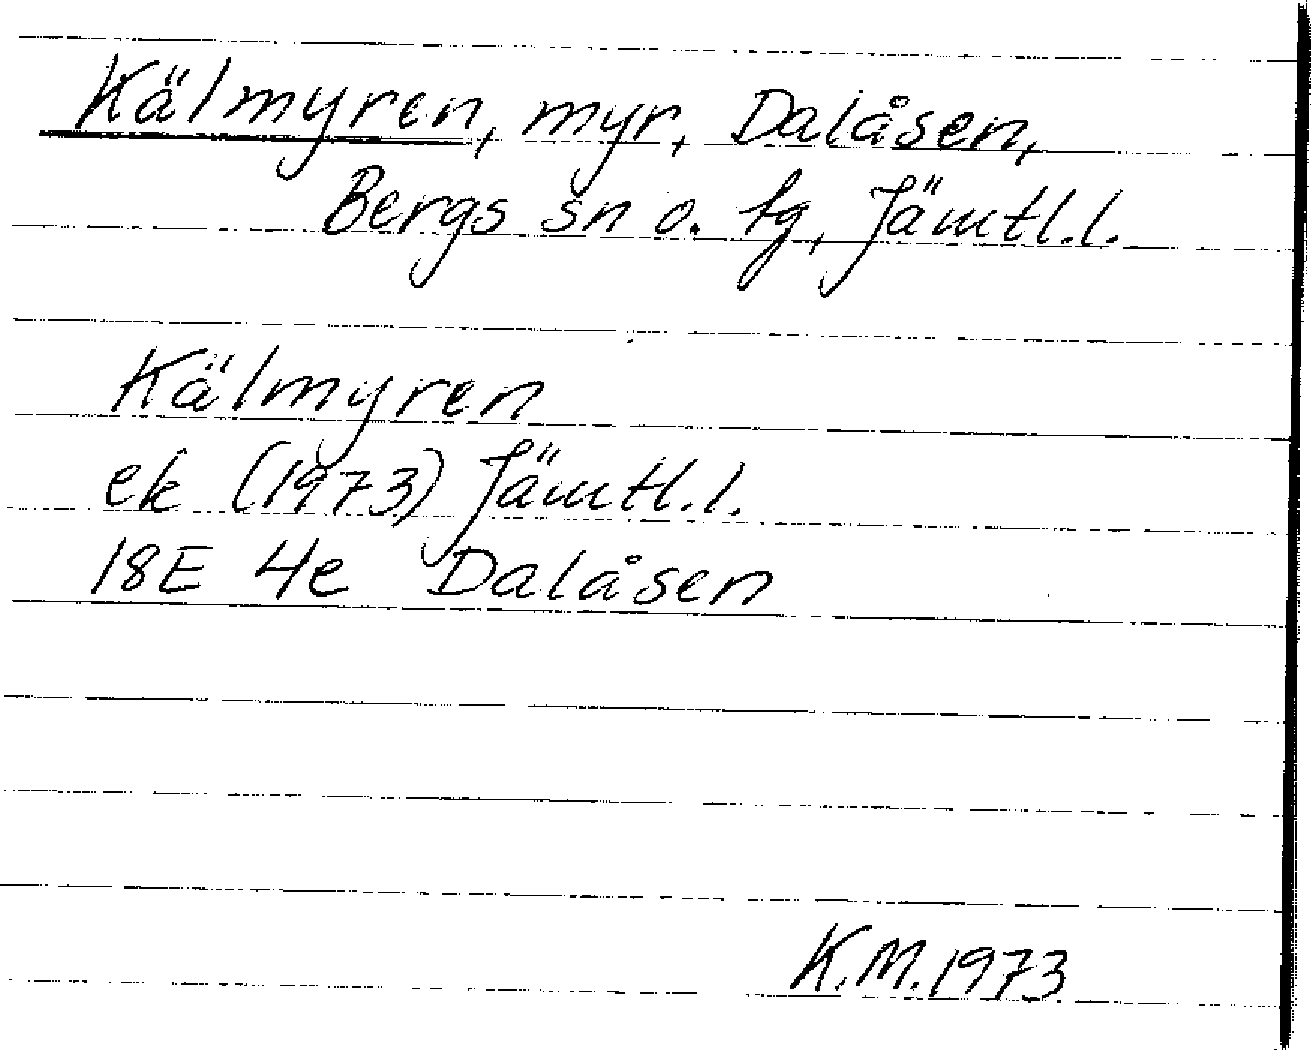 Kälmyren, myr, Dalåsen,
Bergs sn o. tg, Jämtl.l.
Kälmyren
ek (1973) Jämtl.l.
18E 4e Dalåsen
K.M. 1973